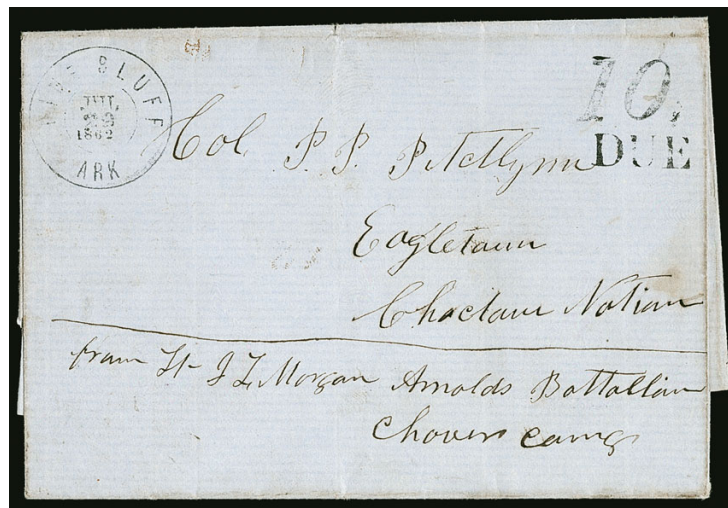 PINE BLUFF
JUL
1862
ARK
10,
DUE
Col. P. P. Pitchlynn
Eagletown
Choctaw Nation
from Lt J L Morgan Arnolds Battallion
camp